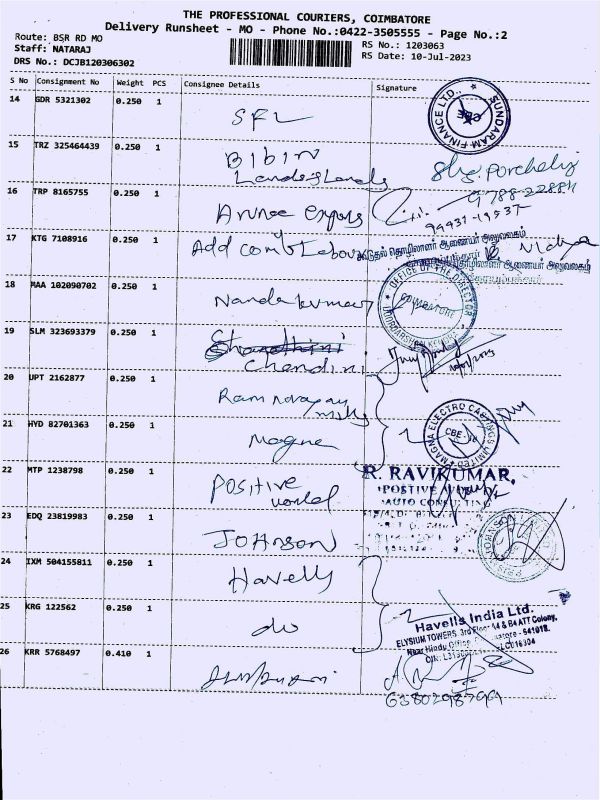 THE PROFESSIONAL COURIERS, COIMBATORE
Delivery Runsheet - MO - Phone No.:0422-3505555 - Page No.:2
Route: BSR RD MO
Staff: NATARAJ
DRS No.: DCJB120306302
RS No.: 1203063
RS Date: 10-Jul-2023
S No Consignment No Weight PCS Consignee Details Signature
14 GDR 5321302 0.250 1 SFL
SUNDARAM FINANCE LTD.,
CBE
15 TRZ 325464439 0.250 1 Bibin
Lands & Lands
9788-22884
16 TRP 8165755 0.250 1
94437-19537
17 KTG 7108916 0.250 1 Add comb Labour
கூடுதல் தொழிலாளர் ஆணையர் அலுவலகம்
தொழிலாளர் ஆணையர் அலுவலகம்
18 MAA 102090702 0.250 1 Nanda kumar
OFFICE OF THE DIRECTOR
COIMBATORE
19 SLM 323693379 0.250 1
Chandini
20 UPT 2162877 0.250 1 Ram narayan
mills
21 HYD 82701363 0.250 1 Magna
MAGNA ELECTRO CASTINGS LIMITED
CBE-18
22 MTP 1238798 0.250 1 Positive
world
R. RAVIKUMAR,
POSTIVE WORLD
AUTO CONSULTING
23 EDQ 23819983 0.250 1 Johnson
24 IXM 504155811 0.250 1 Havells
25 KRG 122562 0.250 1 do
Havells India Ltd.
ELYSIUM TOWERS, 3rd Floor, A4 & B4 ATT Colony,
Near Hindu Office, Coimbatore - 641018.
26 KRR 5768497 0.410 1
6380298799